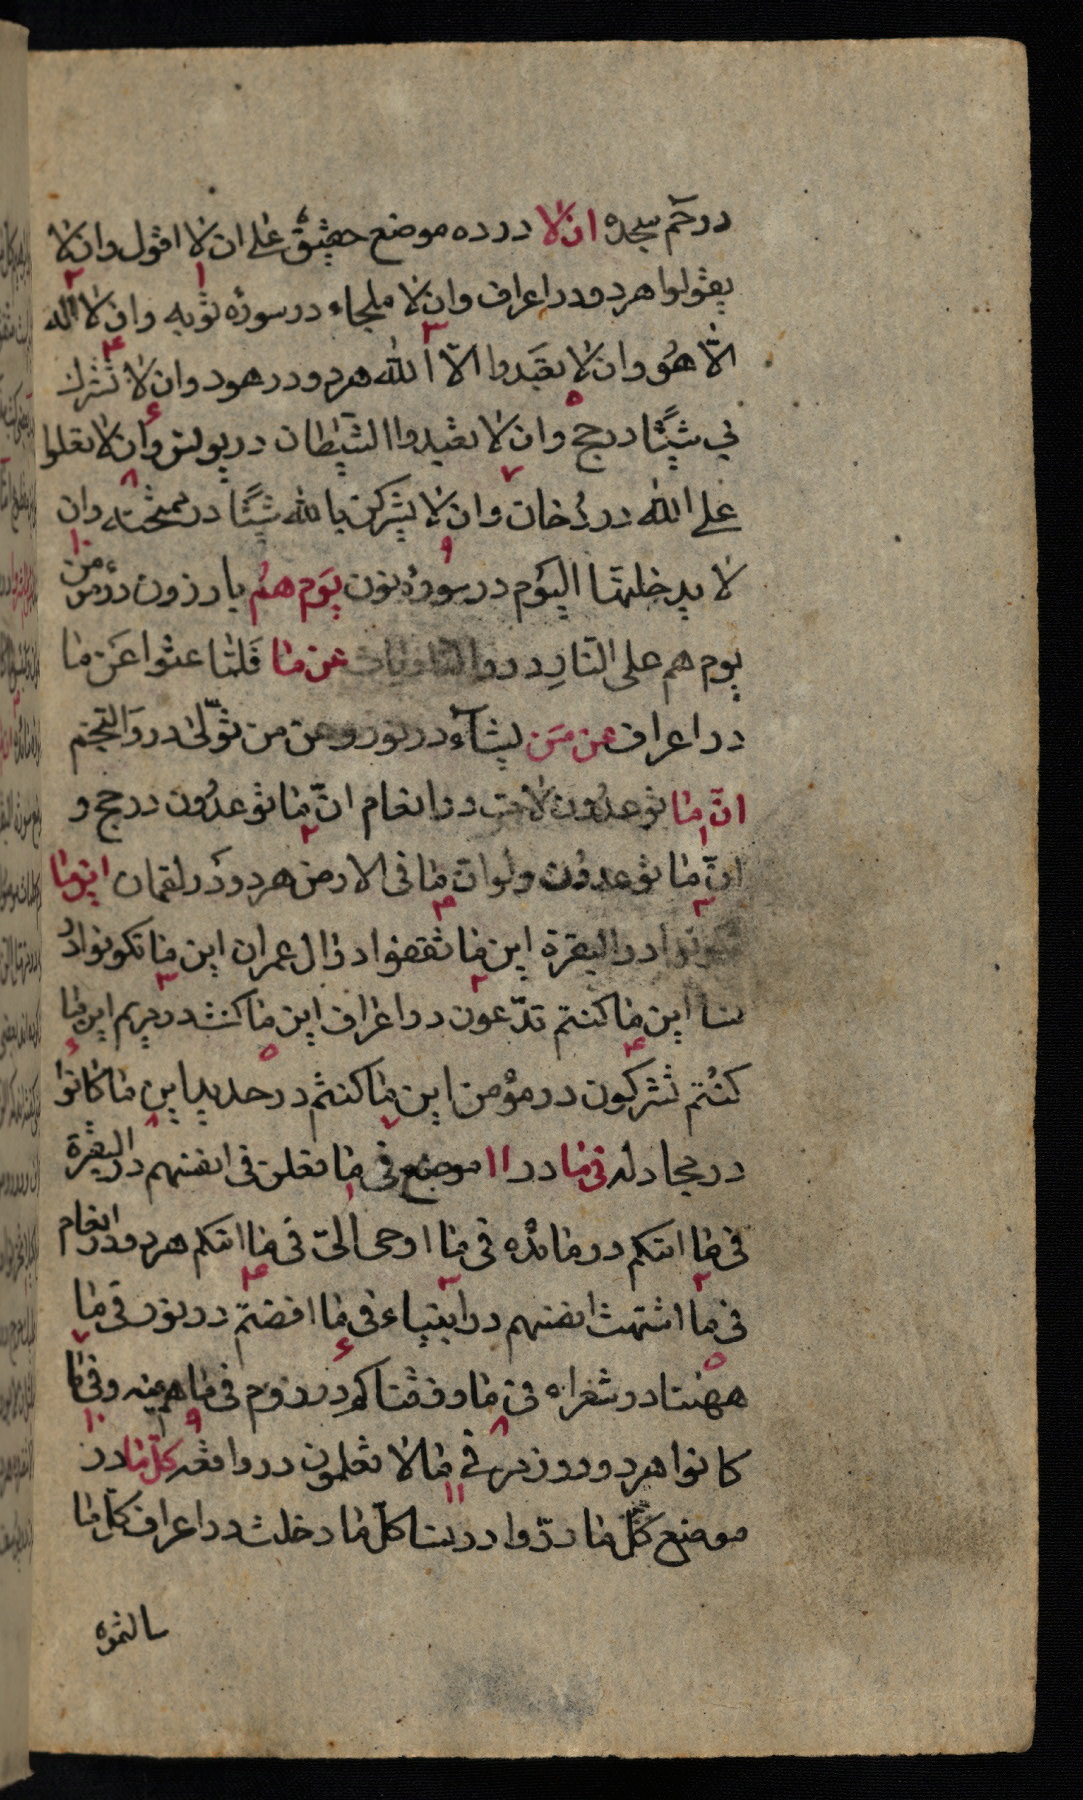 در حٓم سجده ان لا در ده موضع حقیق علی ان لا اقول وان لا
یقولوا هر دو در اعراف وان لا ملجاء در سورهٔ توبه وان لا اله
الّا هُو وان لا تعبدوا الّا الله هر دو در هود وان لا تشرك
بي شیئًا در حج وان لا تعبدوا الشیطان در یونس وان لا تعلوا
علی الله در دُخان وان لا یشرکن بالله شیئًا در ممتحنه وان
لا یدخلنها الیَوم در سورهٔ نون یَوم هُم بارزون در مومن
یوم هم علی النارِ در والذاریات عن ما فَلمّا عتوا عَن ما
در اعراف عن مَن یشآء در نور وعن من تولّیٰ در والنجم
انّ ما توعدُون لاٰت در انعام انّ ما توعدُون در حج و
انّ ما توعدون ولو انّ ما فی الارض هر دو در لقمان این ما
تکونوا در البقرة این ما ثقفوا در اٰل عمران این ما تکونوا در
نسا این ما کنتم تدّعون در اعراف این ما کنت در مریم این ما
کنُتم تشرکون در مؤمن این ما کنتم در حدید این ما کانوا
در مجادله فی ما در ۱۱ موضع فی ما فعلن فی انفسهم در البقرة
فی ما اتیکم در مائده فی ما اوحی الیّ فی ما اتیکم هر دو در انعام
فی ما اشتهت انفسهم در انبیاء فی ما افضتم در نور فی ما
ههنا در شعراء فی ما رزقناکم در روم فی ما هم فیه وفی ما
کانوا هر دو در زمر فی ما لا تعلمون در واقعه کلّ ما در
موضع کلّ ما ردّوا در نسا کلّ ما دخلت در اعراف کلّ ما
سالتموه